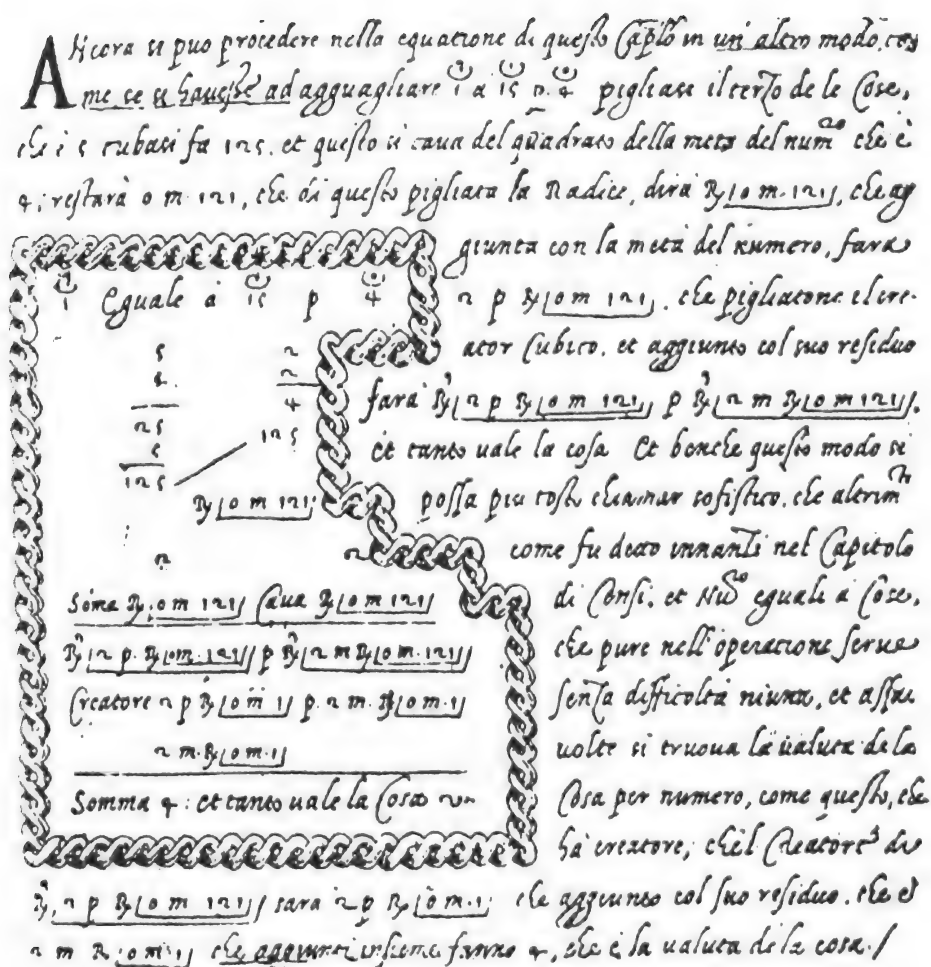 ANcora si puo procedere nella equatione di questo Cap.lo in un' altro modo, co
me se si havesse ad agguagliare 1 a 15 p. 4 pigliasi il terzo de le Cose,
che è 5 cubasi fa 125. et questo si cava del quadrato della metà del num.o che è
4, restarà 0 m. 121, che di questo pigliata la Radice, dirà R 0 m. 121, che ag
giunta con la metà del numero, farà
2 p R 0 m 121. che pigliatone il cre-
ator Cubico, et aggiunto col suo residuo
farà R³ 2 p R 0 m 121 p R³ 2 m R 0 m 121.
et tanto vale la cosa Et benche questo modo si
possa piu tosto chiamar sofistico, che altrim.ti
come fu detto innanti nel Capitolo
di Censi, et Nu.o eguali a Cose,
che pure nell' operatione serve
senza difficoltà niuna, et assai
volte si truova la valuta de la
Cosa per numero, come questo, che
hà creatore, chè'l Creatore di
R³ 2 p R 0 m 121 sarà 2 p R 0 m. 1 che aggiunto col suo residuo, che è
2 m R 0 m. 1 che aggionti insieme fanno 4, che è la valuta de la cosa./
1 Eguale à 15 p 4
5 2
5 2
25 4
5 125
125
R 0 m 121
2 2
Soma R 0 m 121 Cava R 0 m 121
R³ 2 p. R 0 m. 121 p R³ 2 m R 0 m. 121
Creatore 2 p R 0 m 1 p. 2 m. R 0 m. 1
2 m. R 0 m. 1
Somma 4: et tanto vale la Cosa